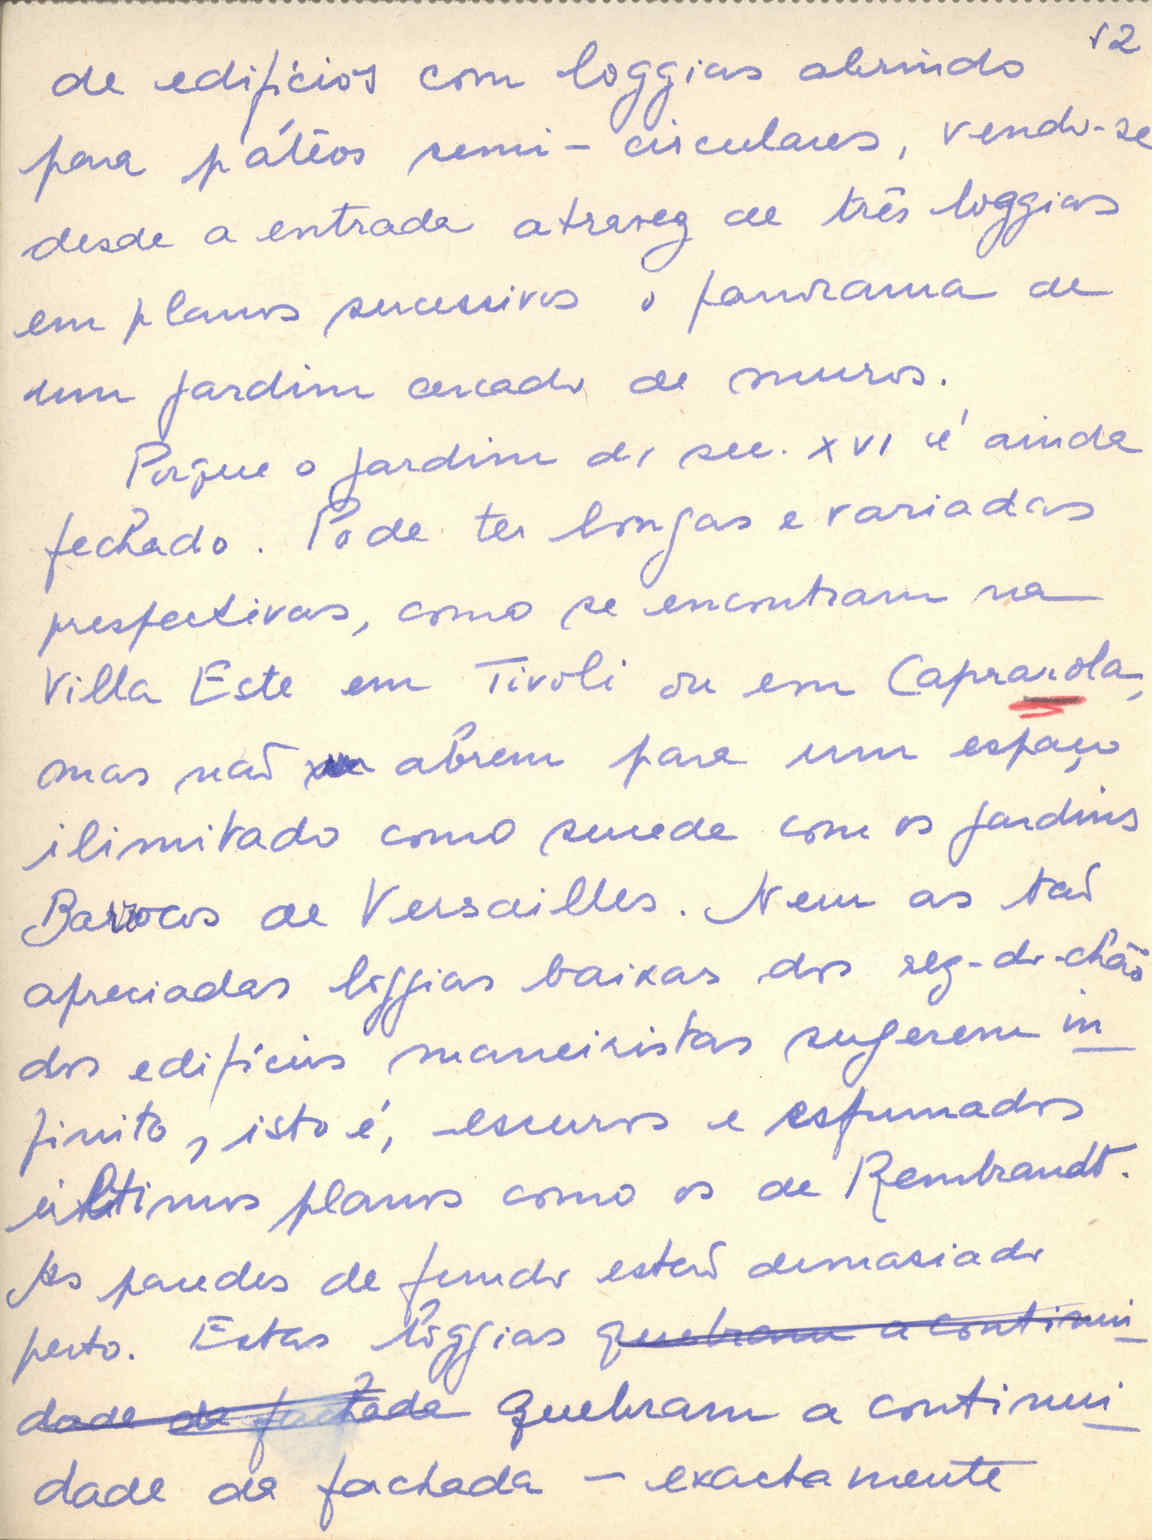 12
de edifícios com loggias abrindo
para pátêos semi-circulares, vendo-se
desde a entrada atravez de três loggias
em planos sucessivos o panorama de
um jardim cercado de muros.
Porque o jardim do sec. XVI é ainda
fechado. Pode ter longas e variadas
prespectivas, como se encontram na
Villa Este em Tivoli ou em Caprarola,
mas não abrem para um espaço
ilimitado como sucede com os jardins
Barrocos de Versailles. Nem as tão
apreciadas loggias baixas dos rez-do-chão
dos edifícios maneiristas sugerem in
finito, isto é, escuros e esfumados
últimos planos como os de Rembrandt.
As paredes de fundo estão demasiado
perto. Estas loggias quebram a continui
dade da fachada quebram a continui
dade da fachada – exactamente